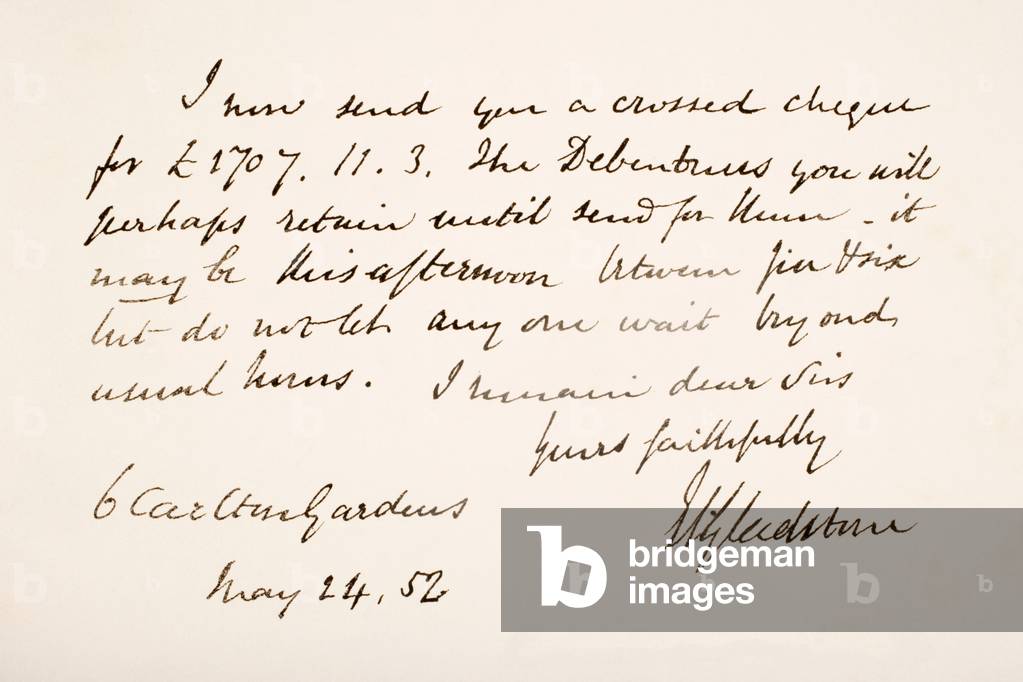 I now send you a crossed cheque
for £1707. 11. 3. The Debentures you will
perhaps retain until send for them - it
may be this afternoon between five & six
but do not let any one wait beyond
usual hours. I remain dear Sirs
Yours faithfully
WEGladstone
6 Carlton Gardens
May 24, 52
bridgeman
images